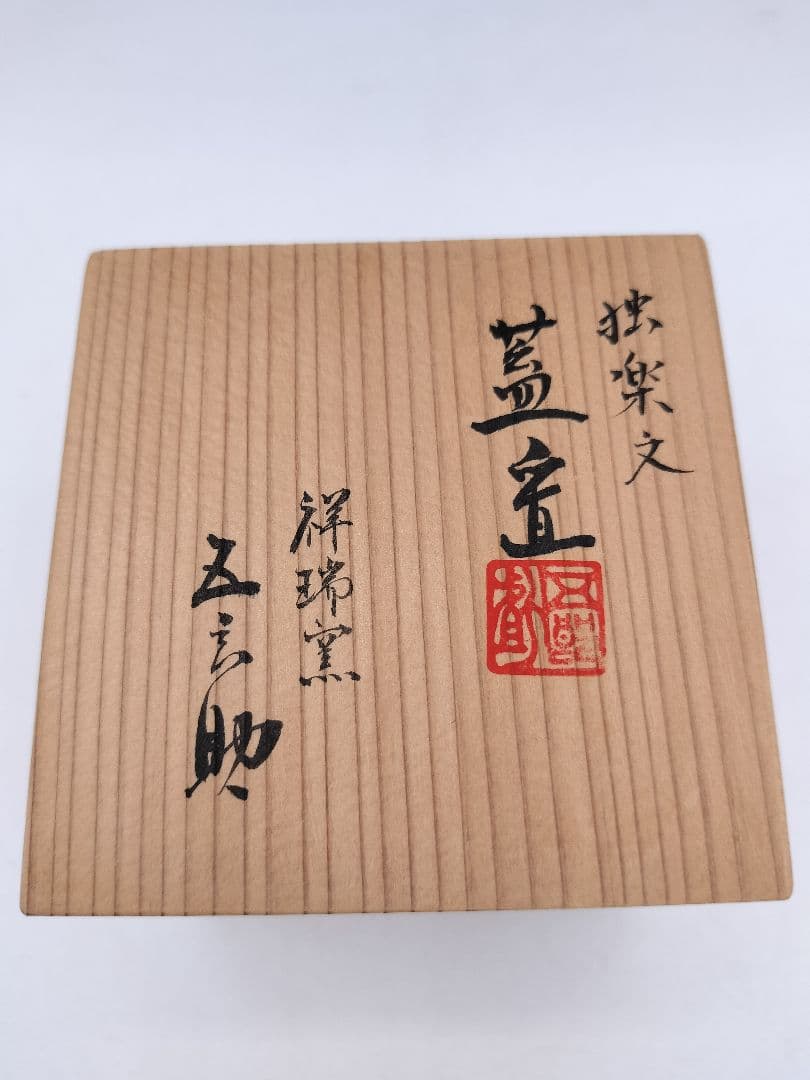 独楽文
蓋置
祥瑞窯
五六助